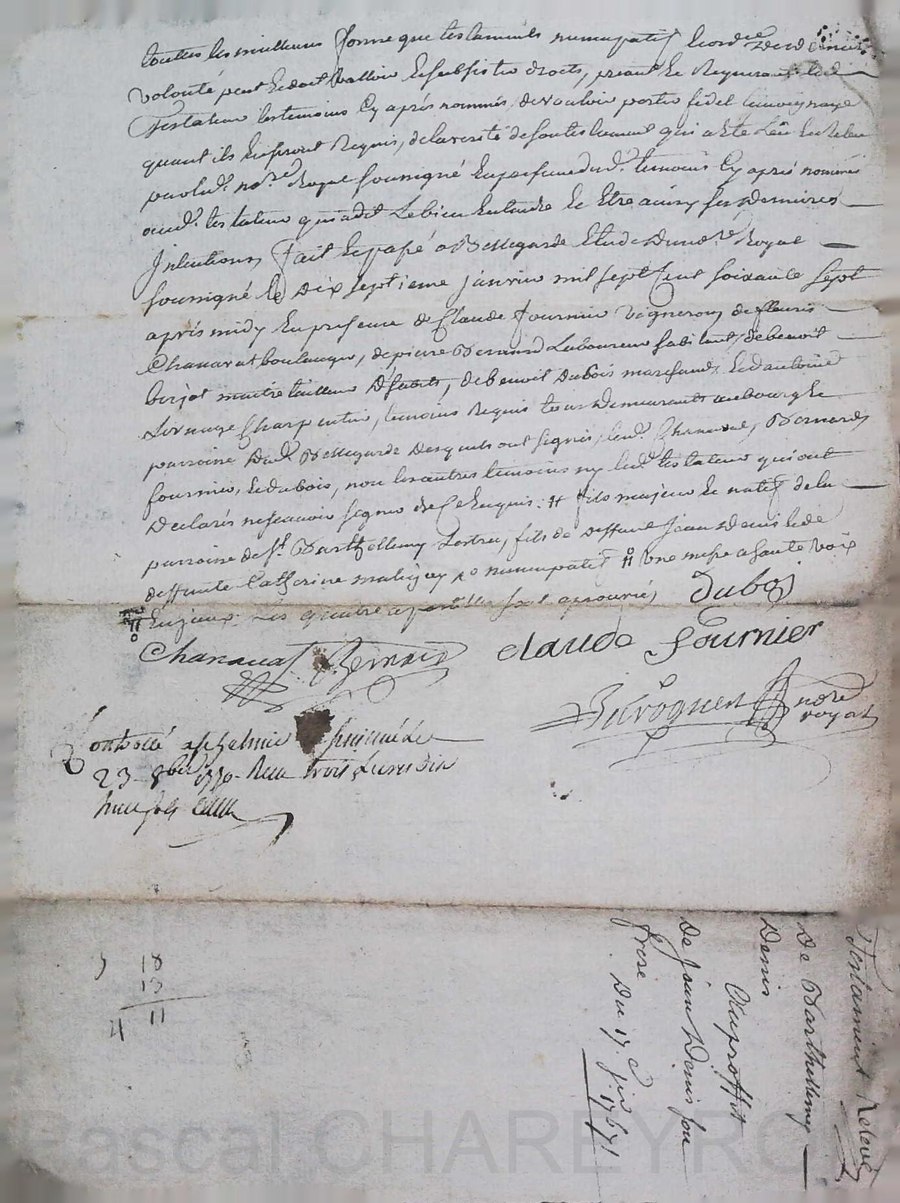 toutes les meilleurs forme que testaments nuncupatif
volonté peut et doit valloir et subsister droits, priant et Requerant led
Testateur les temoins Cy aprés nommés, de vouloir porter fidel temoignage
quant ils en seront Requis, de la verité de son testament qui a été Leu et Releu
par led. nore Royal soussigné en presence des d. temoins Cy aprés nommés
aud. testateur qui a dit Le bien Entendre Et Etre ainsy ses dernieres
Intentions, fait et passé a Bellegarde Etude dud nre Royal
soussigné le dix septieme janvier mil sept Cent soixante sept
aprés midy En presence de Claude fournier vigneron, de fleuris
Chanavat boulanger, de pierre Bernard Laboureur habitant, de benoit
maitre tailleur d'habits, de benoit Dubois marchand, Et d'antoine
Charpentier, temoins Requis tous demeurants au bourg Et
parroisse dud. Bellegarde desquels ont signés, led. Chanavat, Bernard,
fournier, et dubois, non les autres temoins ny led. testateur qui ont
declarés ne scavoir signer de ce Enquis: # fils majeur Et natif de la
parroisse de st. Barthellemy Lestra, fils de deffunt Jean Denis Et de
deffunte Catherine nuncupatif # une messe a haute voix
Dubois
Chanavat Bernard Claude Fournier
nore royal
Controllé a st Gelmier Le
23 8bre 1770 Reçu trois Livres dix
huit sols
5 18
13
4 11
Testament Relevé
De Barthellemy
Denis
Au proffit
De Jean Denis son
frere
Du 17. Jer 1767
Pascal CHAREYRON